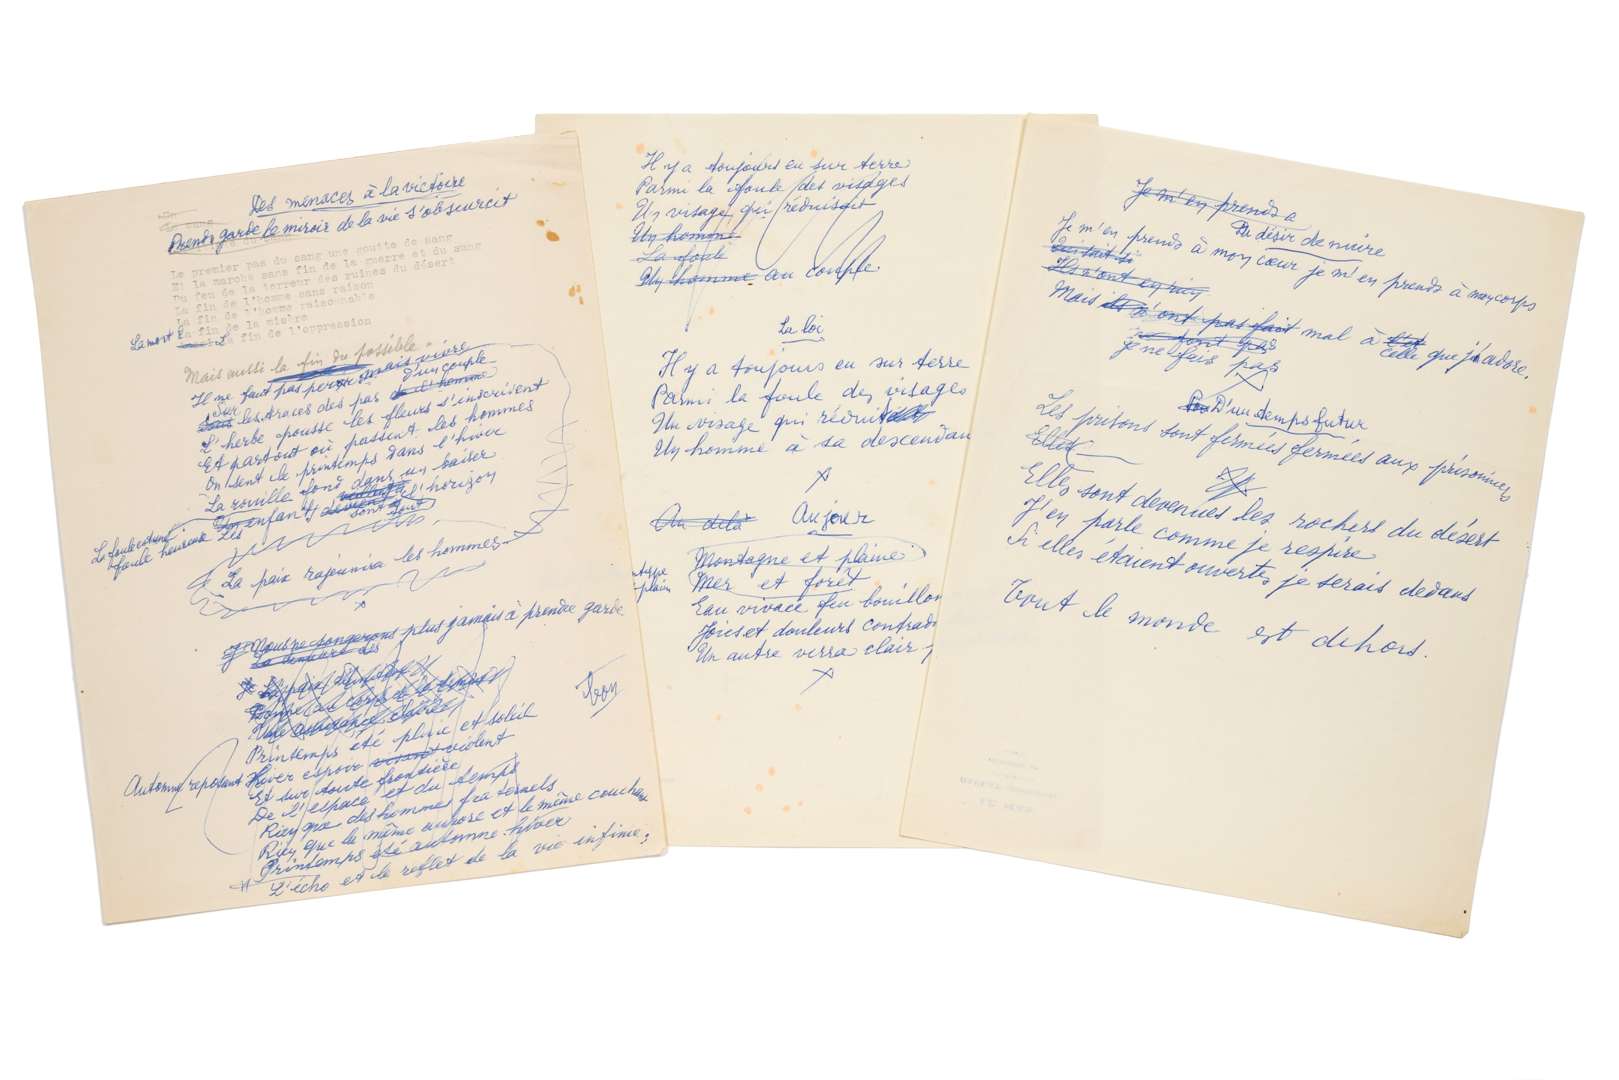 Des menaces à la victoire
Prends garde le miroir de la vie s'obscurcit
Le premier pas du sang une goutte de sang
Et la marche sans fin de la guerre et du sang
Du feu de la terreur des ruines du désert
La fin de l'homme sans raison
La fin de l'homme raisonnable
La fin de la misère
La mort
La fin de l'oppression
Mais aussi la fin du possible
Il ne faut pas mais vivre
Sur les traces des pas d'un couple
de l'homme
L'herbe pousse les fleurs s'inscrivent
Et partout où passent les hommes
On sent le printemps dans l'hiver
La rouille fond dans un baiser
Les enfants sont tout l'horizon
La foule
foule heureuse
La paix rajeunira les hommes
Nous ne songerons plus jamais à prendre garde
Printemps été pluie et soleil
Automne reposant Hiver espoir vivant violent
Et sur toute frontière
De l'espace et du temps
Rien que des hommes fraternels
Rien que la même aurore et le même couchant
Printemps été automne hiver
L'écho et le reflet de la vie infinie
Il y a toujours eu sur terre
Parmi la foule des visages
Un visage qui réduisait
Un homme
La foule
Un homme au couple
La loi
Il y a toujours eu sur terre
Parmi la foule des visages
Un visage qui réduit
Un homme à sa descendan
Au delà Au jour
Montagne et plaine
Mer et forêt
Eau vivace feu bouillon
Joies et douleurs contrad
Un autre verra clair
Je m'en prends a
Du désir de nuire
Je m'en prends à mon cœur je m'en prends à mon corps
Ils n'ont en rien
Mais n'ont pas fait mal à celle que j'adore.
ne font pas
je ne fais pas
D'un temps futur
Les prisons sont fermées fermées aux prisonniers
Elles
Elles sont devenues les rochers du désert
J'en parle comme je respire
Si elles étaient ouvertes je serais dedans
Tout le monde est dehors.